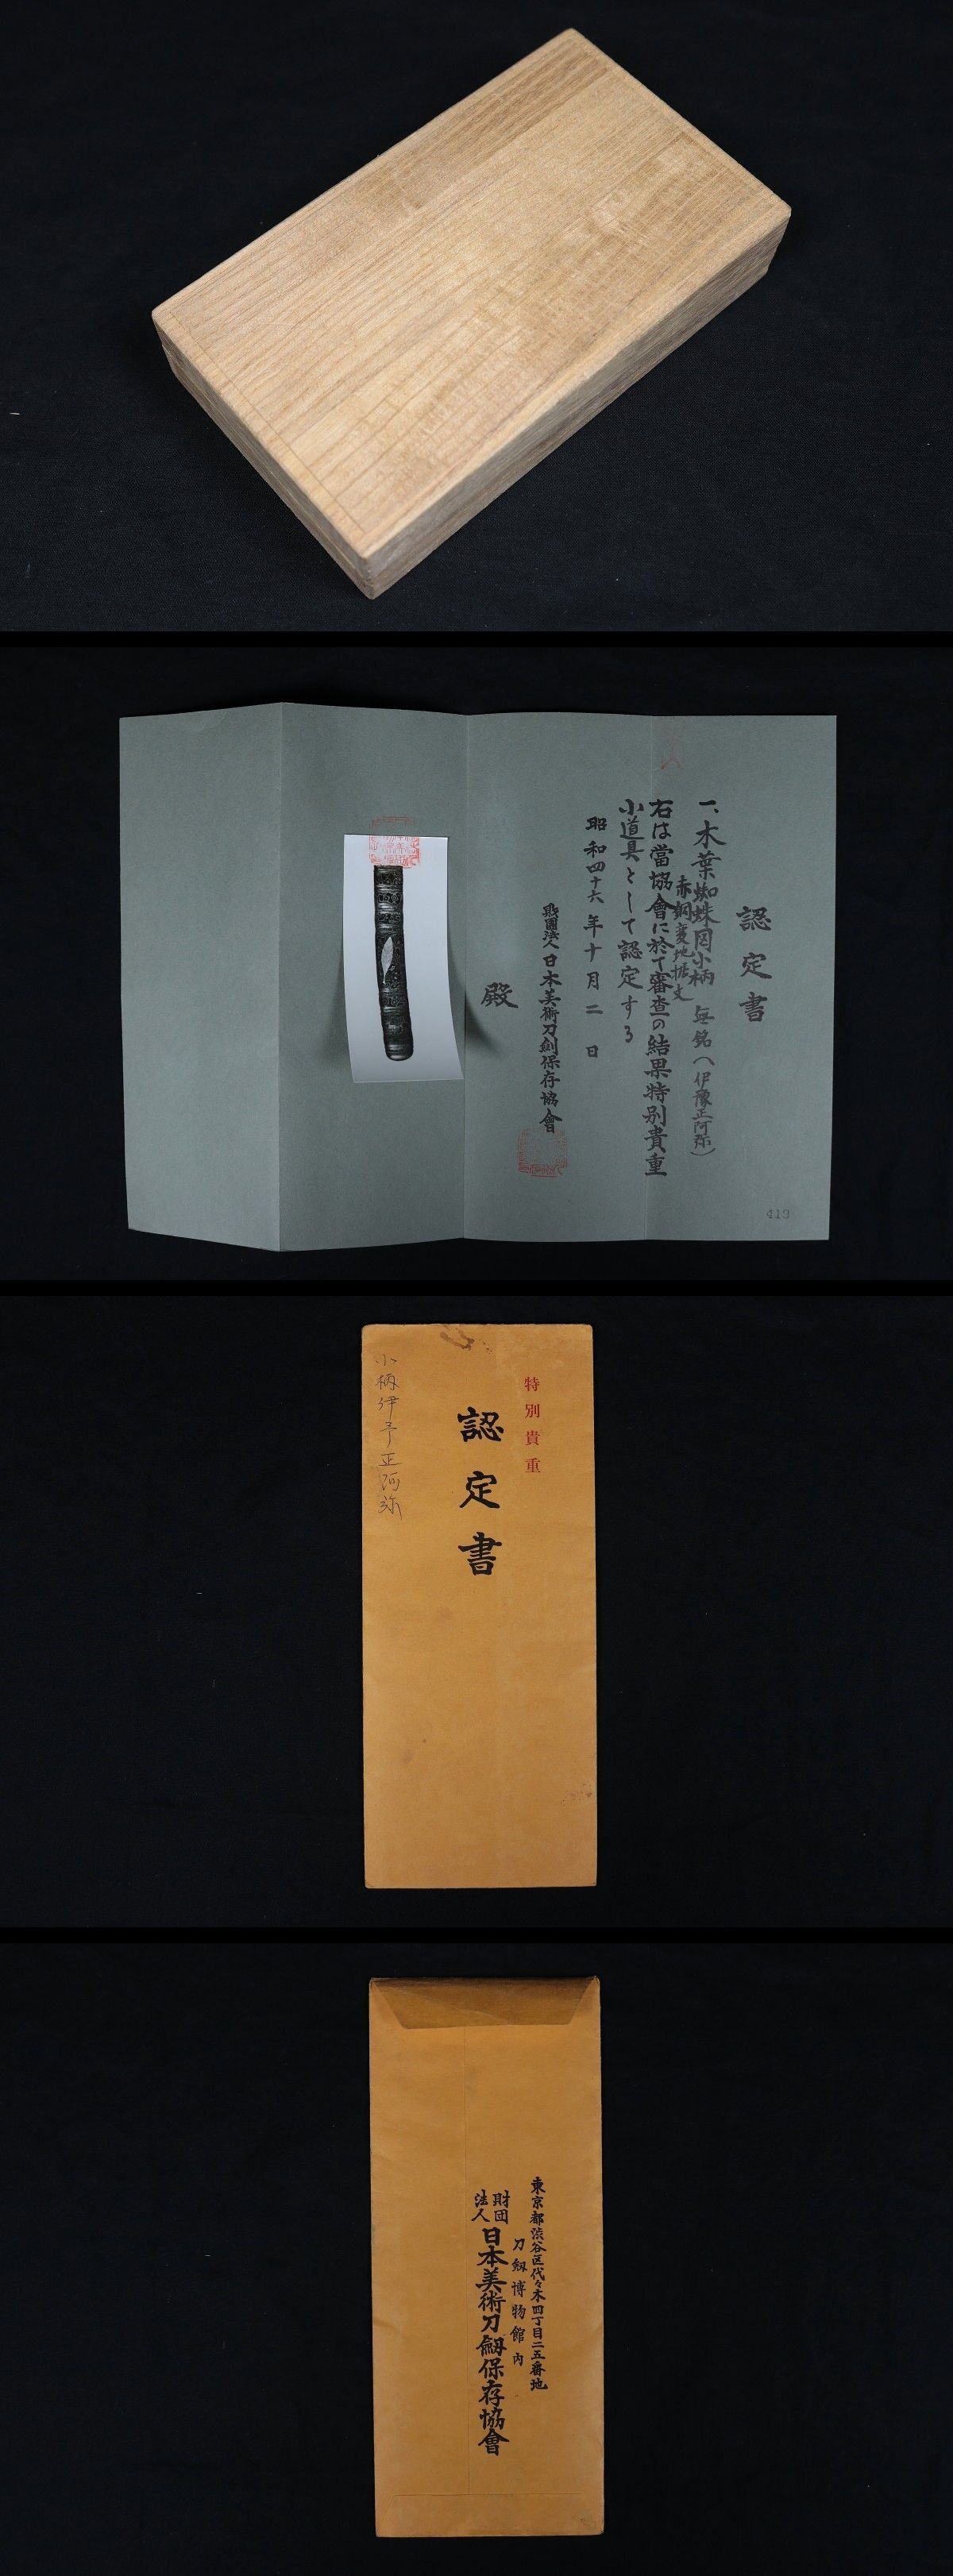 認定書
一、木葉蜘蛛図小柄 無銘(伊豫正阿弥)
赤銅変地据文
右は當協會に於て審査の結果特別貴重
小道具として認定する
昭和四十六年十月二日
財團法人日本美術刀劍保存協會
殿
419
特別貴重
認定書
小柄伊予正阿弥
東京都渋谷区代々木四丁目二五番地
刀劔博物館内
財団法人日本美術刀劔保存協會